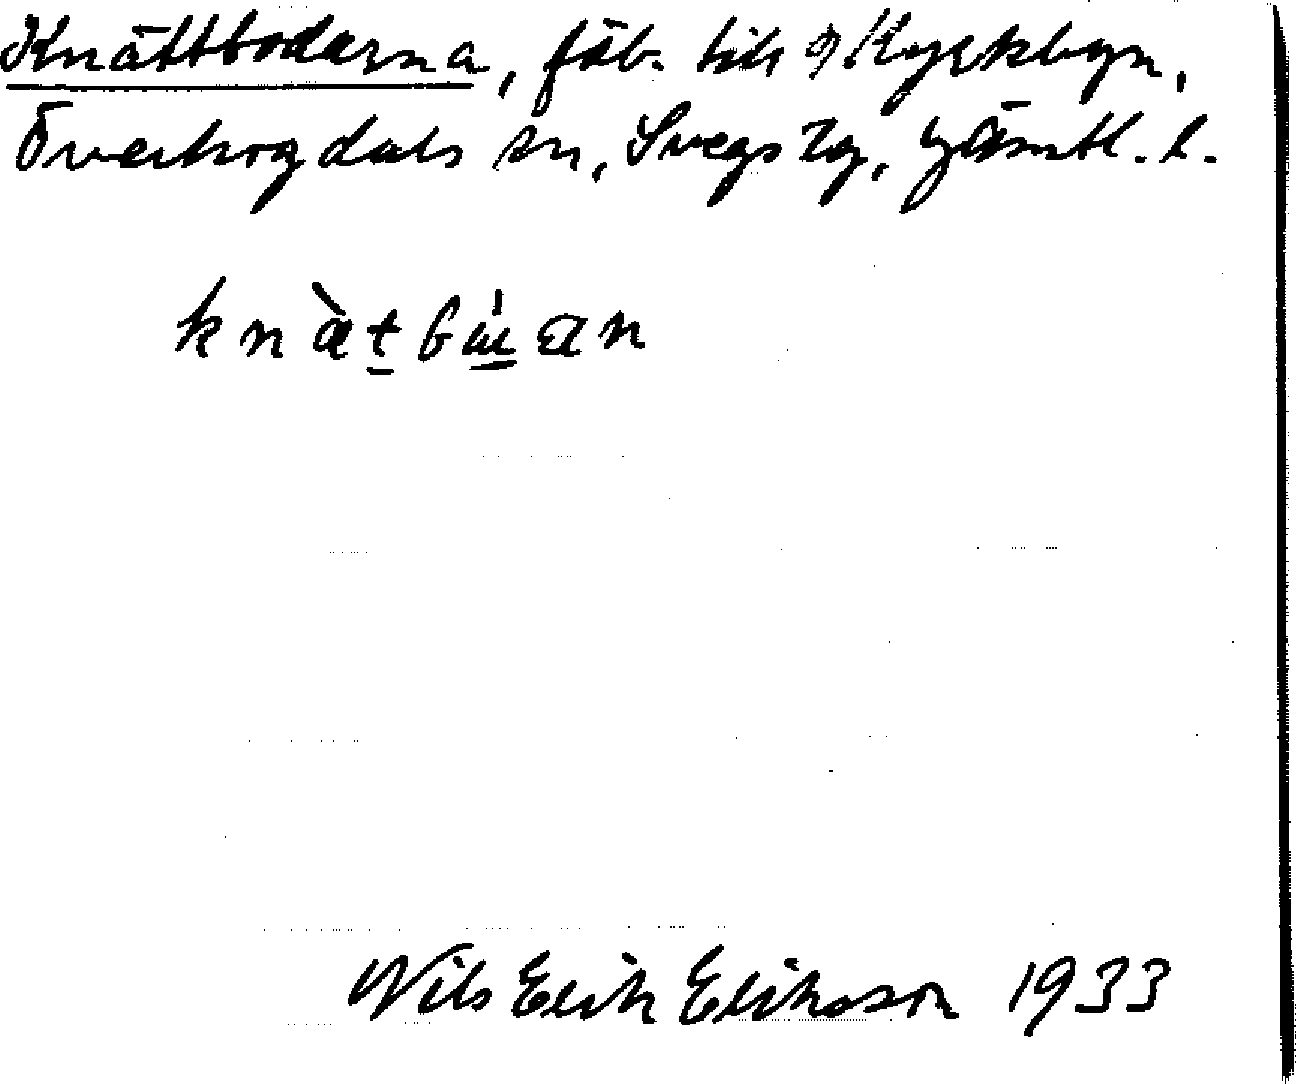 Knättbodarna, fäb. till Kyrkbyn,
Överhogdals sn, Svegs tg, Jämtl. l.
Nils Erik Eriksson 1933